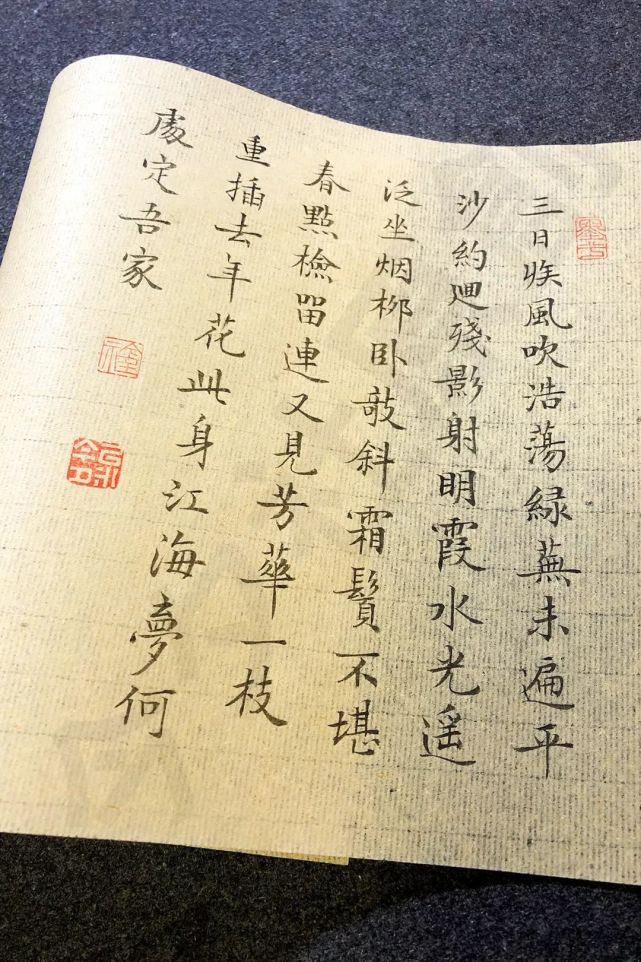 三日疾風吹浩蕩緑蕪未遍平
沙約廻殘影射明霞水光遥
泛坐烟柳卧敧斜霜鬢不堪
春點檢留連又見芳華一枝
重插去年花此身江海夢何
處定吾家